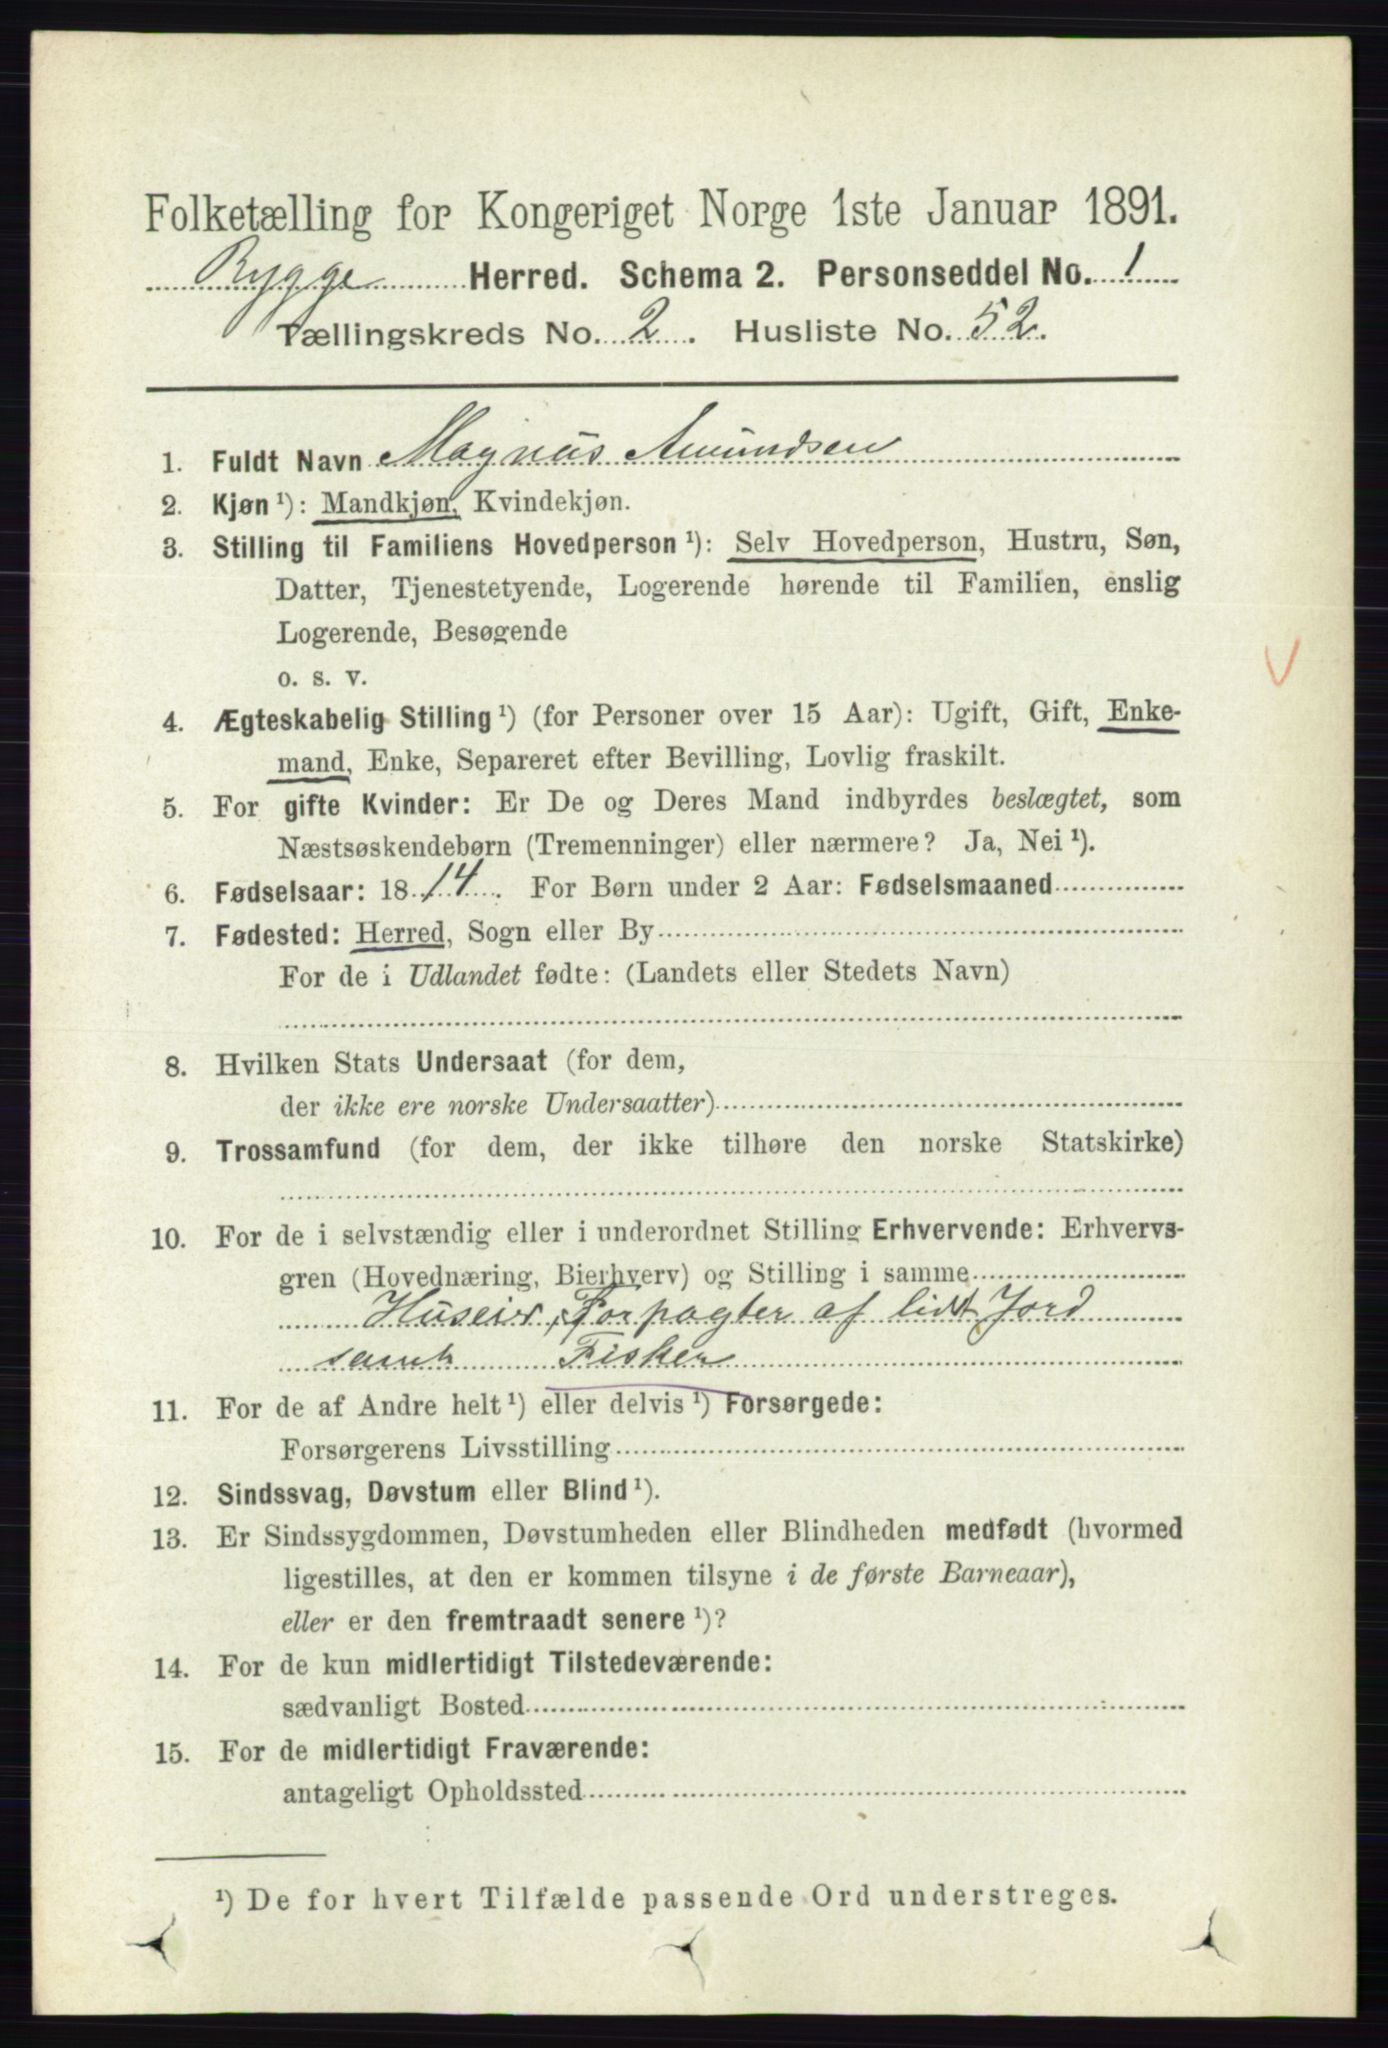 Folketælling for Kongeriget Norge 1ste Januar 1891.
Rygge Herred. Schema 2. Personseddel No. 1
Tællingskreds No. 2. Husliste No. 52.
1. Fuldt Navn Magnus Amundsen
2. Kjøn ¹): Mandkjøn, Kvindekjøn.
3. Stilling til Familiens Hovedperson ¹): Selv Hovedperson, Hustru, Søn,
Datter, Tjenestetyende, Logerende hørende til Familien, enslig
Logerende, Besøgende
o. s. v.
4. Ægteskabelig Stilling ¹) (for Personer over 15 Aar): Ugift, Gift, Enke-
mand, Enke, Separeret efter Bevilling, Lovlig fraskilt.
5. For gifte Kvinder: Er De og Deres Mand indbyrdes beslægtet, som
Næstsøskendebørn (Tremenninger) eller nærmere? Ja, Nei ¹).
6. Fødselsaar: 1814. For Børn under 2 Aar: Fødselsmaaned
7. Fødested: Herred, Sogn eller By
For de i Udlandet fødte: (Landets eller Stedets Navn)
8. Hvilken Stats Undersaat (for dem,
der ikke ere norske Undersaatter)
9. Trossamfund (for dem, der ikke tilhøre den norske Statskirke)
10. For de i selvstændig eller i underordnet Stilling Erhvervende: Erhvervs-
gren (Hovednæring, Bierhverv) og Stilling i samme
Huseier, Forpagter af lidt Jord
samt Fisker
11. For de af Andre helt ¹) eller delvis ¹) Forsørgede:
Forsørgerens Livsstilling
12. Sindssvag, Døvstum eller Blind ¹).
13. Er Sindssygdommen, Døvstumheden eller Blindheden medfødt (hvormed
ligestilles, at den er kommen tilsyne i de første Barneaar),
eller er den fremtraadt senere ¹)?
14. For de kun midlertidigt Tilstedeværende:
sædvanligt Bosted
15. For de midlertidigt Fraværende:
antageligt Opholdssted
¹) De for hvert Tilfælde passende Ord understreges.